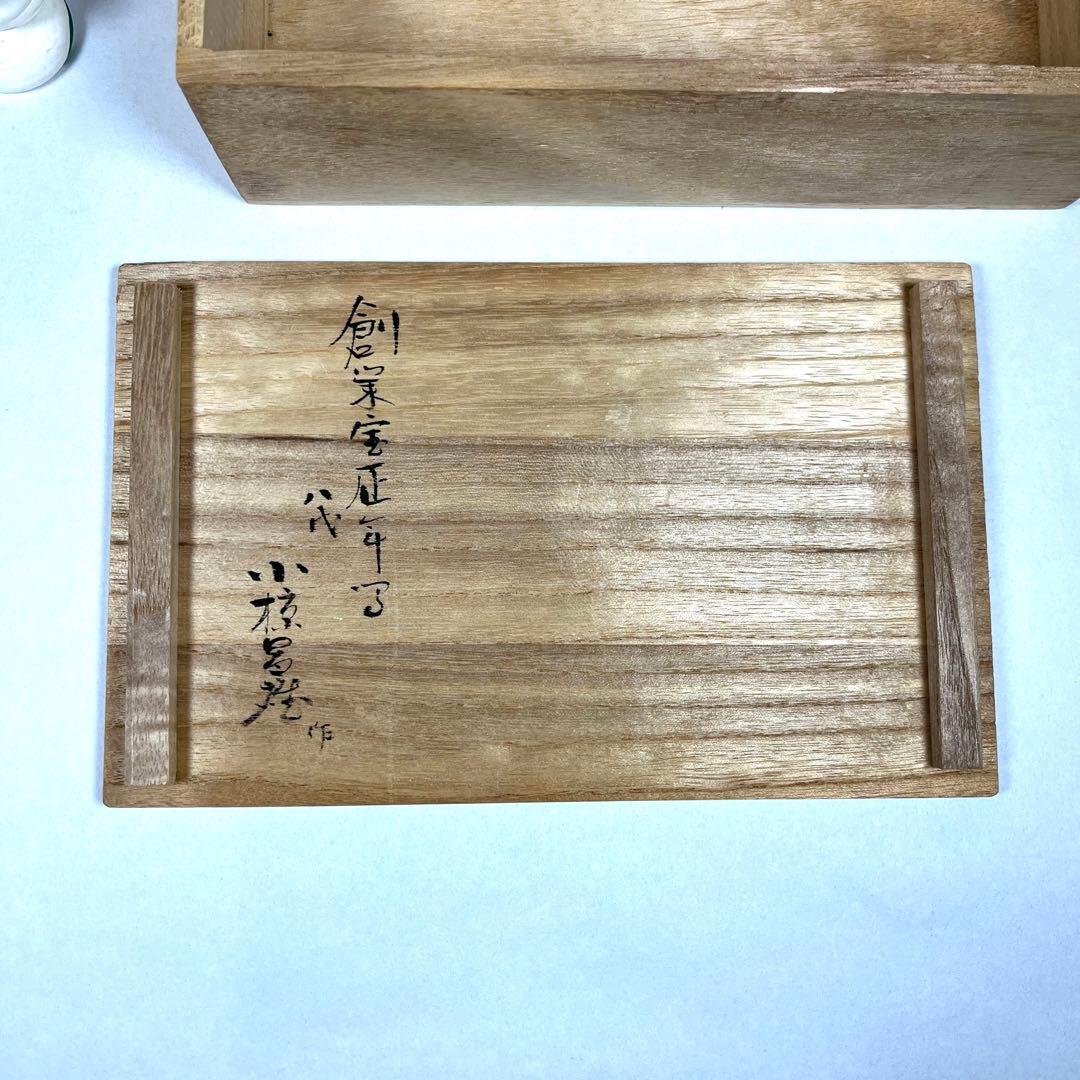 創業宝暦年間
八代
小椋昌
作